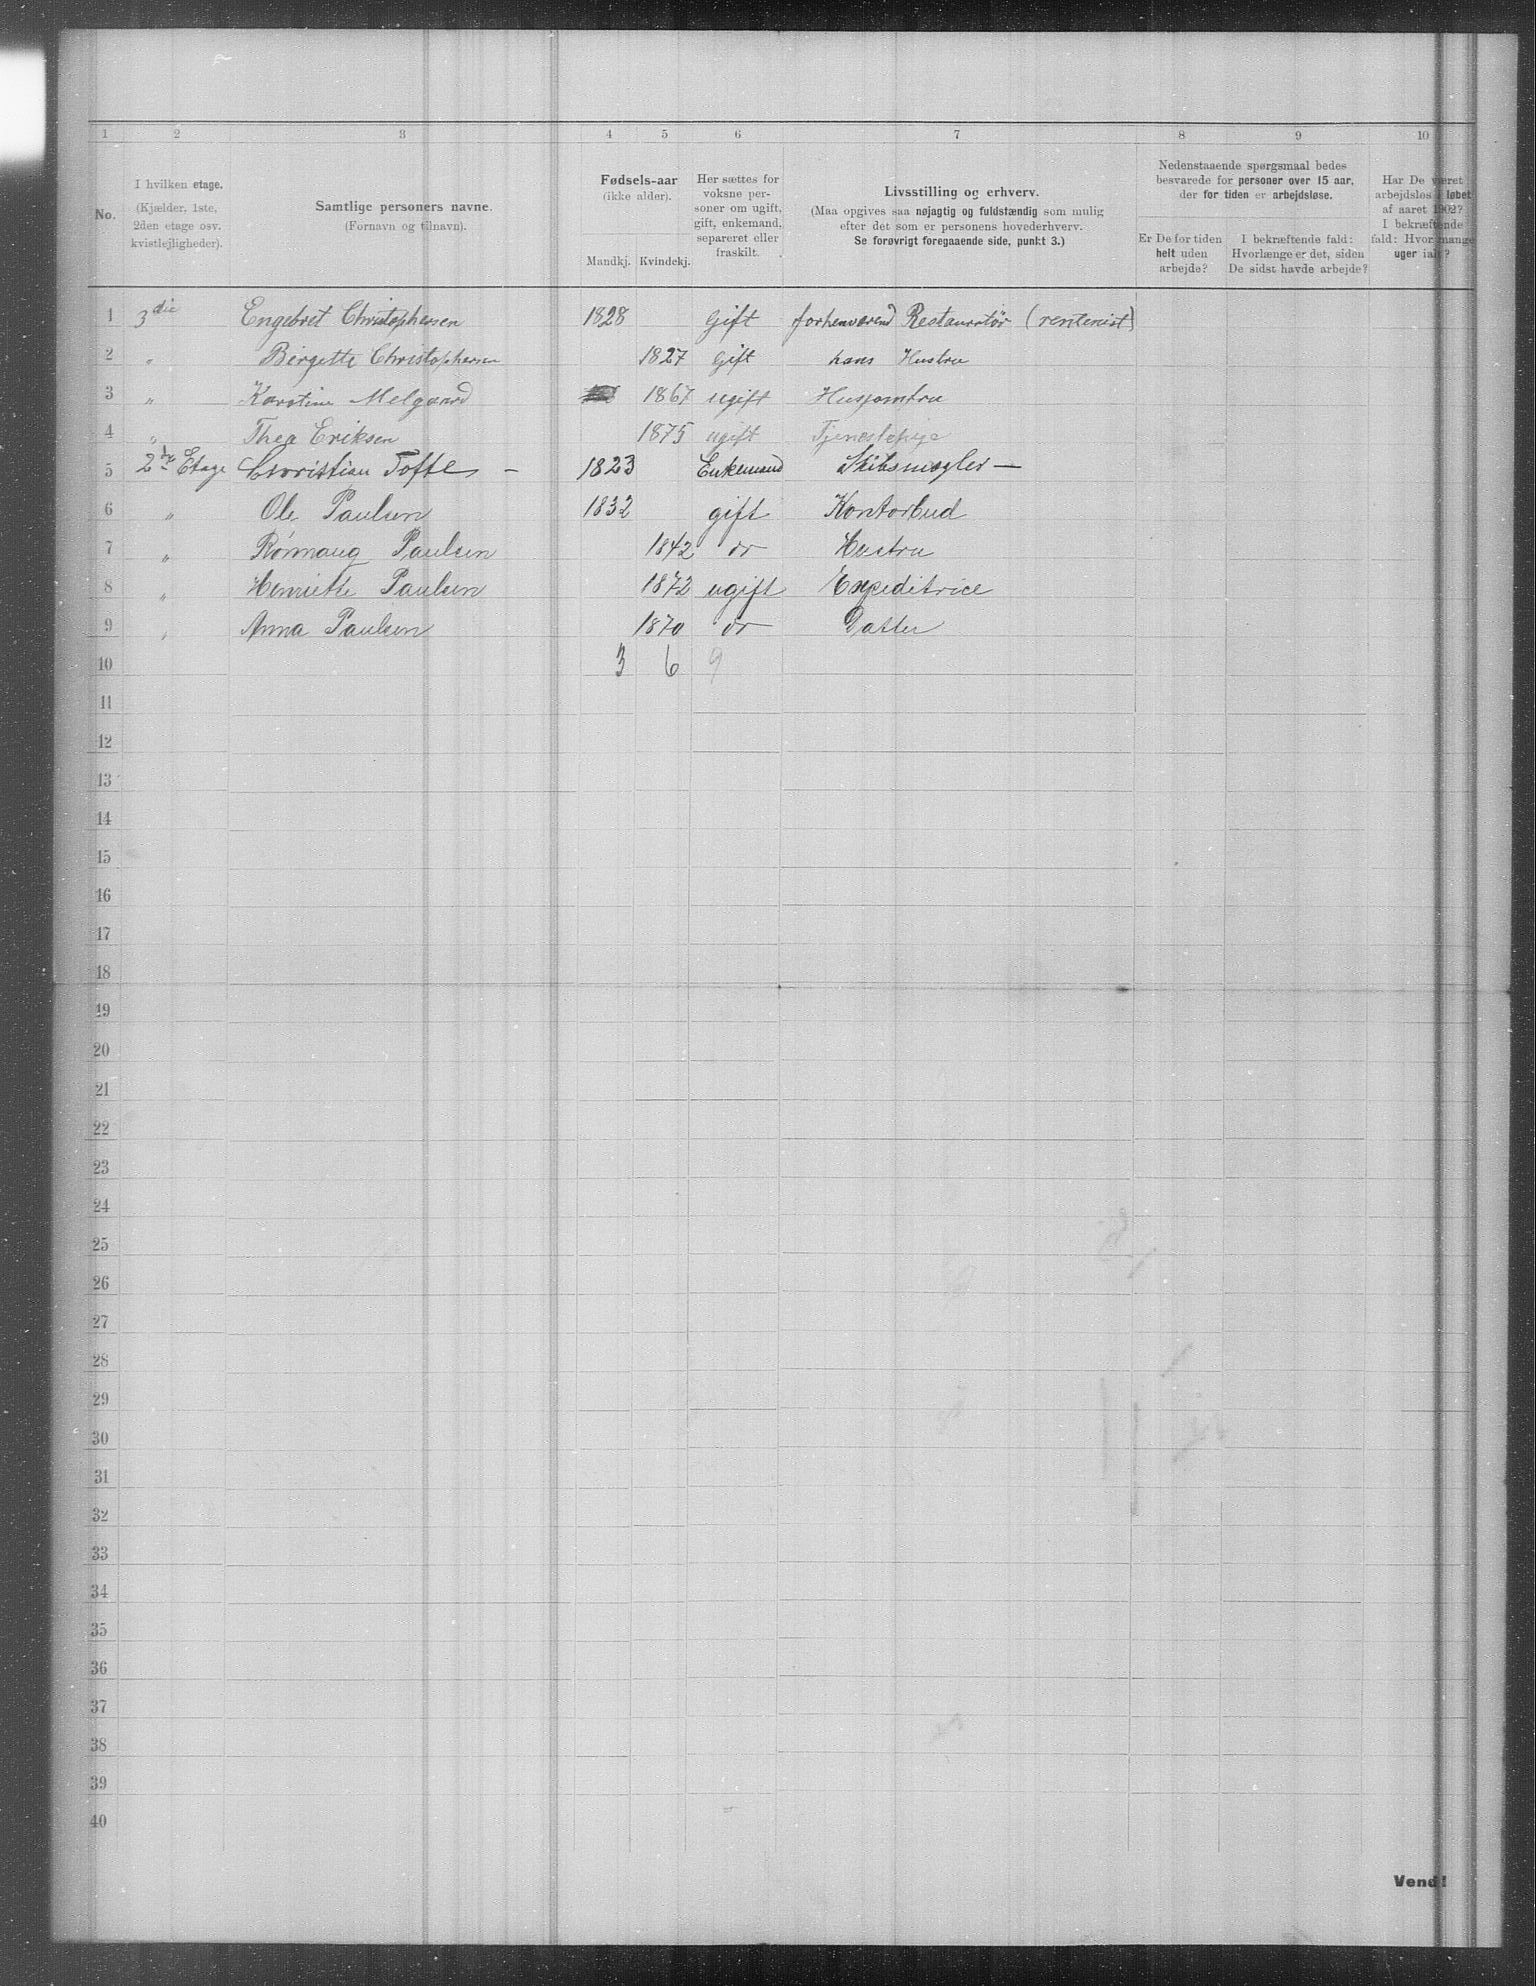 1 2 3 4 5 6 7 8 9 10
No.
I hvilken etage.
(Kjælder, 1ste,
2den etage osv.
kvistlejligheder).
Samtlige personers navne.
(Fornavn og tilnavn).
Fødsels-aar
(ikke alder).
Mandkj. Kvindekj.
Her sættes for
voksne per-
soner om ugift,
gift, enkemand,
separeret eller
fraskilt.
Livsstilling og erhverv.
(Maa opgives saa nøjagtig og fuldstændig som mulig
efter det som er personens hovederhverv.
Se forøvrigt foregaaende side, punkt 3.)
Nedenstaaende spørgsmaal bedes
besvarede for personer over 15 aar,
der for tiden er arbejdsløse.
Er De for tiden
helt uden
arbejde?
I bekræftende fald:
Hvorlænge er det, siden
De sidst havde arbejde?
Har De været
arbejdsløs i løbet
af aaret 1902?
I bekræftende
fald: Hvor mange
uger ialt?
1 3die Engebret Christophersen 1828 Gift forhenværend Restauratør (rentenist)
2 " Birgette Christophersen 1827 Gift hans Hustru
3 " Karstine Melgaard 1867 ugift Husjomfru
4 " Thea Eriksen 1875 ugift Tjenestepige
5 2den Etage Christian Tofte - 1823 Enkemand Skibsmægler —
6 " Ole Paulsen 1832 gift Kontorbud
7 " Rønnaug Paulsen 1842 do Hustru
8 " Henriette Paulsen 1872 ugift Expeditrice
9 " Anna Paulsen 1870 do Datter
10 3 6 9
11
12
13
14
15
16
17
18
19
20
21
22
23
24
25
26
27
28
29
30
31
32
33
34
35
36
37
38
39
40
Vend!